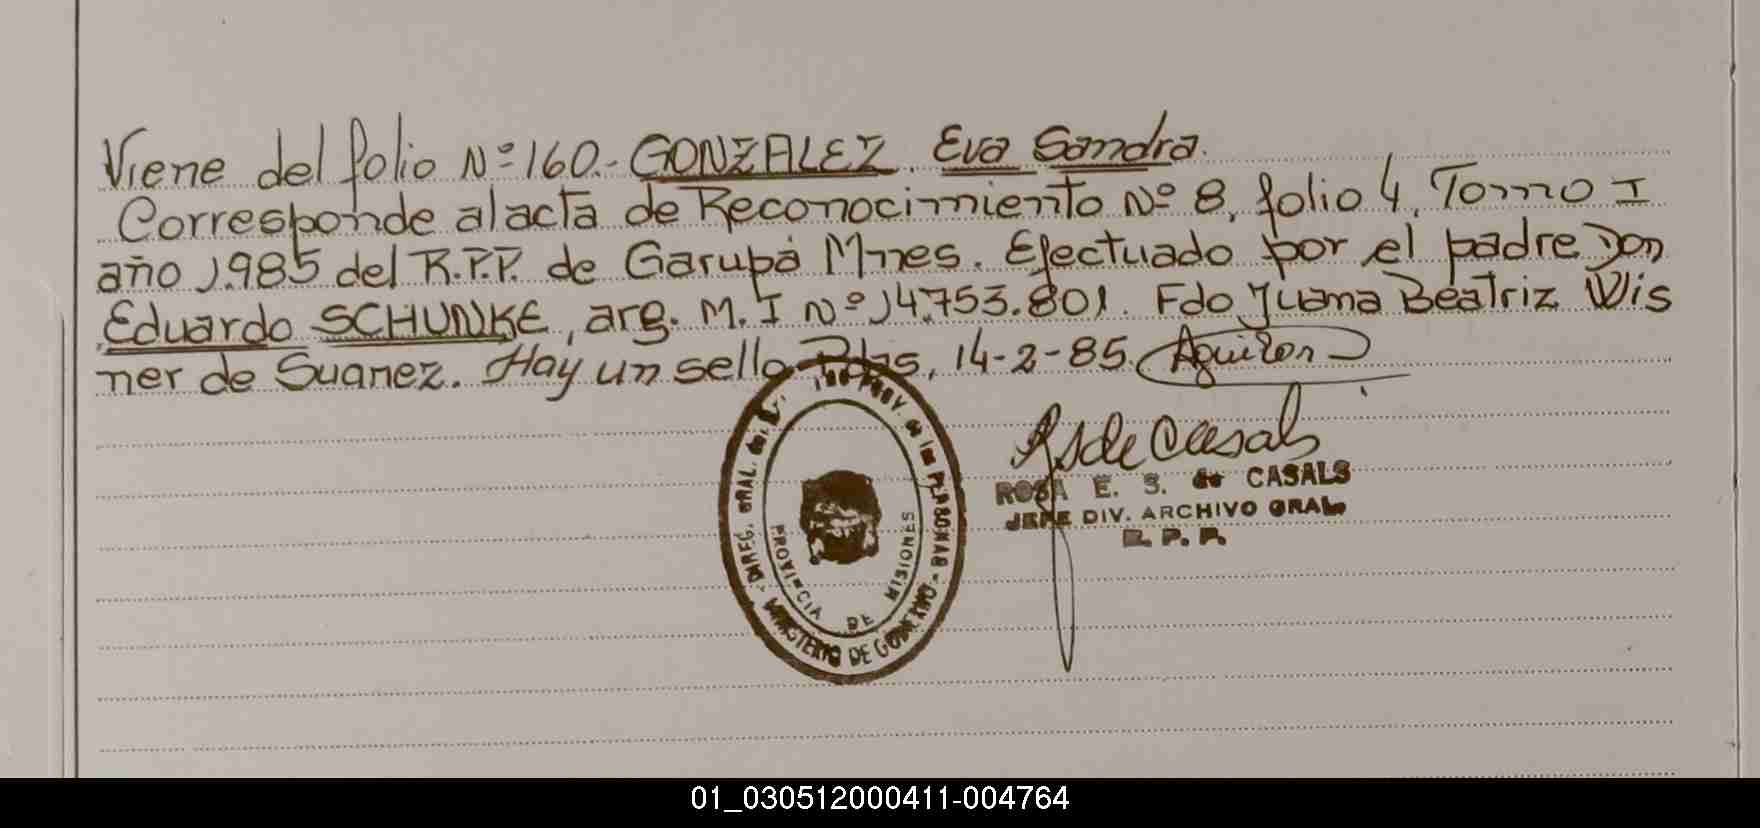 Viene del folio Nº 160.- GONZALEZ. Eva Sandra.
Corresponde al acta de Reconocimiento Nº 8, folio 4, Tomo I
año 1.985 del R.P.P. de Garupá Mnes. Efectuado por el padre Don
Eduardo SCHUNKE, arg. M.I Nº 14.753.801. Fdo Juana Beatriz Wis
ner de Suarez. Hay un sello Pdas, 14-2-85.
DIREC. GRAL. del PROV. de las PERSONAS - MINISTERIO DE GOBIERNO -
PROVINCIA DE MISIONES
RS de Casals
ROSA E. S. de CASALS
JEFE DIV. ARCHIVO GRAL.
R. P. P.
01_030512000411-004764